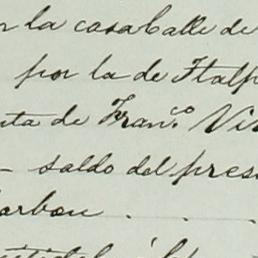 la casa Calle de
por la de Ytalp
ta de Fran.co Vi
saldo del pres
arbon . . .